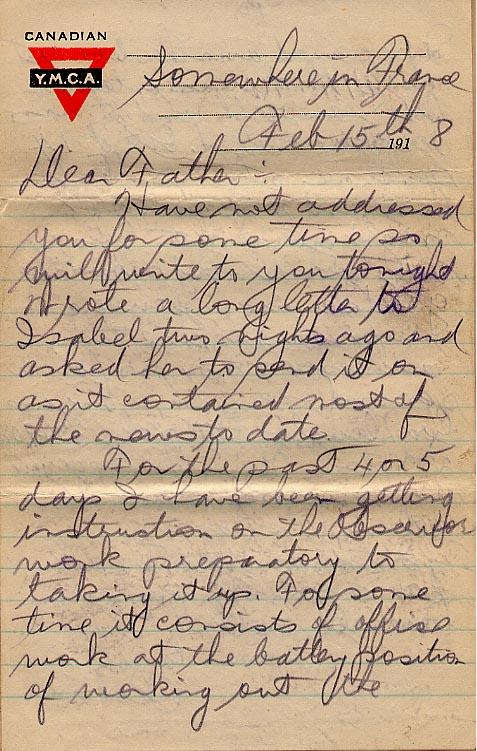 CANADIAN
Y.M.C.A.
Somewhere in France
Feb 15th 1918
Dear Father :
Have not addressed
you for some time so
will write to you tonight
Wrote a long letter to
Isabel two nights ago and
asked her to send it on
as it contained most of
the news to date.
For the past 4 or 5
days I have been getting
instruction on the Observer
work preparatory to
taking it up. For some
time it consists of office
work at the battery position
of working out the